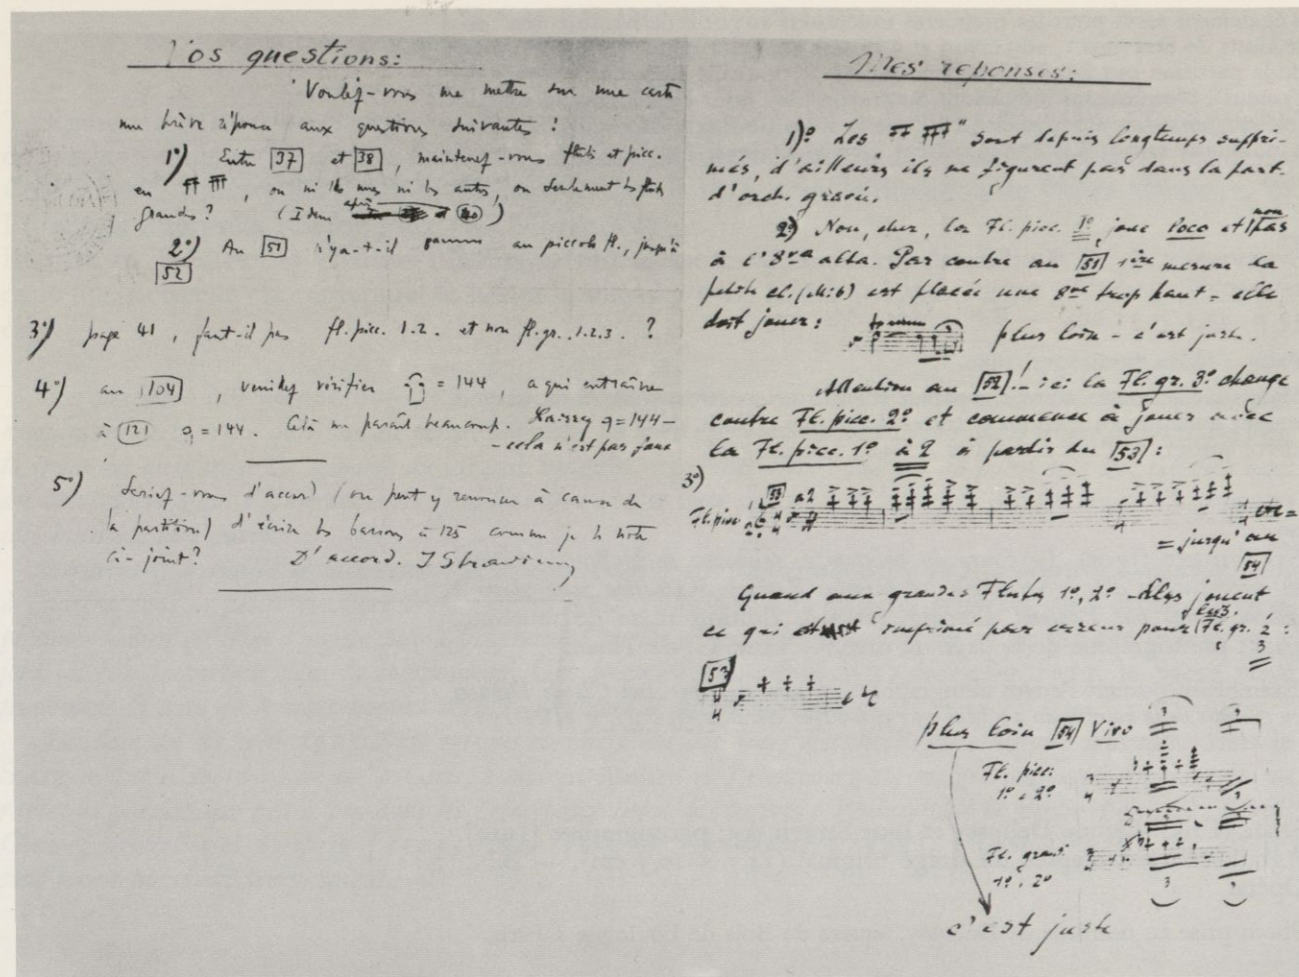 Vos questions:
Voulez-vous me mettre sur une carte
une brève réponse aux questions suivantes :
1º) Entre 37 et 38, maintenez-vous flûtes et picc.
en, ou ni les unes ni les autres, ou seulement les flûtes
grandes? (Idem après 40)
2º) Au 51 n'y a-t-il gammes au piccolo fl., jusqu'à
52
3º) page 41, faut-il pas fl. picc. 1.2. et non fl. gr. 1.2.3. ?
4º) au 104, veuillez vérifier = 144, a qui entraîne
à 121 = 144. Celà me paraît beaucoup. Laissez = 144 –
– cela n'est pas faux
5º) Seriez-vous d'accord (on peut y renoncer à cause de
la partition) d'écrire les bassons à 125 comme je le note
ci-joint? D'accord. I Strawinsky
Mes reponses:
1)º Les " sont depuis longtemps suppri-
més, d'ailleurs ils ne figurent pas dans la part.
d'orch. gravée.
2º) Non, cher, les Fl. picc. 1º, joue loco et non pas
à l'8va alta. Par contre au 51 1ère mesure la
petite cl. (Mib) est placée une 8ve trop haut = elle
doit jouer: plus loin – c'est juste.
Attention au 52! – ici la Fl. gr. 3º change
contre Fl. picc. 2º et commence à jouer avec
la Fl. picc. 1º à 2 à partir du 53:
3º)
Fl. picc 53 a2 etc =
= jusqu'au
54
Quand aux grandes Flûtes 1º, 2º – elles jouent
ce qui est imprimé par erreur pour les 3 Fl. gr. 1
2
3
53
plus loin 54 Vivo
Fl. picc:
1º e 2º
Fl. grandi
1º e 2º
c'est juste